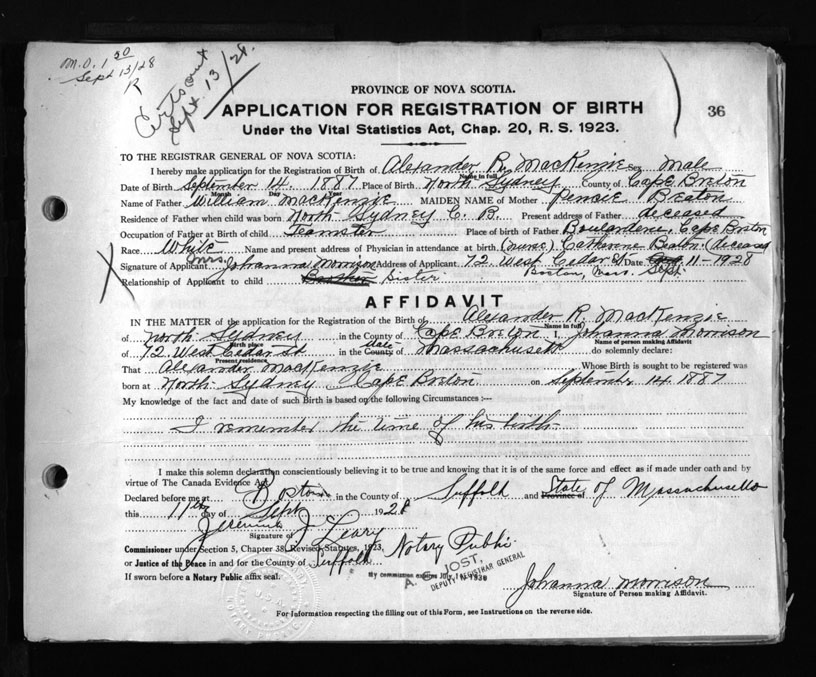 M.O. 1 50
Sept 13/28
R
Certs out
Sept. 13/28.
PROVINCE OF NOVA SCOTIA.
APPLICATION FOR REGISTRATION OF BIRTH
36
Under the Vital Statistics Act, Chap. 20, R. S. 1923.
TO THE REGISTRAR GENERAL OF NOVA SCOTIA:
I hereby make application for the Registration of Birth of Alexander R. MacKenzie Sex Male
Name in full
Date of Birth September 14. 1887 Place of Birth North Sydney County of Cape Breton
Month Day Year
Name of Father William MacKenzie MAIDEN NAME of Mother Beaton
Residence of Father when child was born North Sydney C. B. Present address of Father deceased
Occupation of Father at Birth of child Teamster Place of birth of Father Boulardene, Cape Breton
Race White Name and present address of Physician in attendance at birth (nurse) Catherine Beaton (deceased
Signature of Applicant Mrs. Johanna Morrison Address of Applicant 72 West Cedar St Date 11-1928
Boston, Mass. Sept
Relationship of Applicant to child sister
AFFIDAVIT
IN THE MATTER of the application for the Registration of the Birth of Alexander R. MacKenzie
Name in full
of North Sydney in the County of Cape Breton I, Johanna Morrison
Birth place Name of person making Affidavit
of 72 West Cedar St in the County of State Massachusetts do solemnly declare:
Present residence
That Alexander MacKenzie Whose Birth is sought to be registered was
born at North Sydney Cape Breton on September 14 1887
My knowledge of the fact and date of such Birth is based on the following Circumstances :—
I remember the time of his birth
I make this solemn declaration conscientiously believing it to be true and knowing that it is of the same force and effect as if made under oath and by
virtue of The Canada Evidence Act.
Declared before me at Boston in the County of Suffolk and Province of State of Massachusetts
this 11th day of Sept 1928
Jeremiah J. Leary
Signature of
Commissioner under Section 5, Chapter 38, Revised Statutes, 1923, Notary Public
or Justice of the Peace in and for the County of Suffolk
My commission expires July 1930
A. C. JOST,
DEPUTY REGISTRAR GENERAL
If sworn before a Notary Public affix seal.
Johanna Morrison
Signature of Person making Affidavit.
For Information respecting the filling out of this Form, see Instructions on the reverse side.